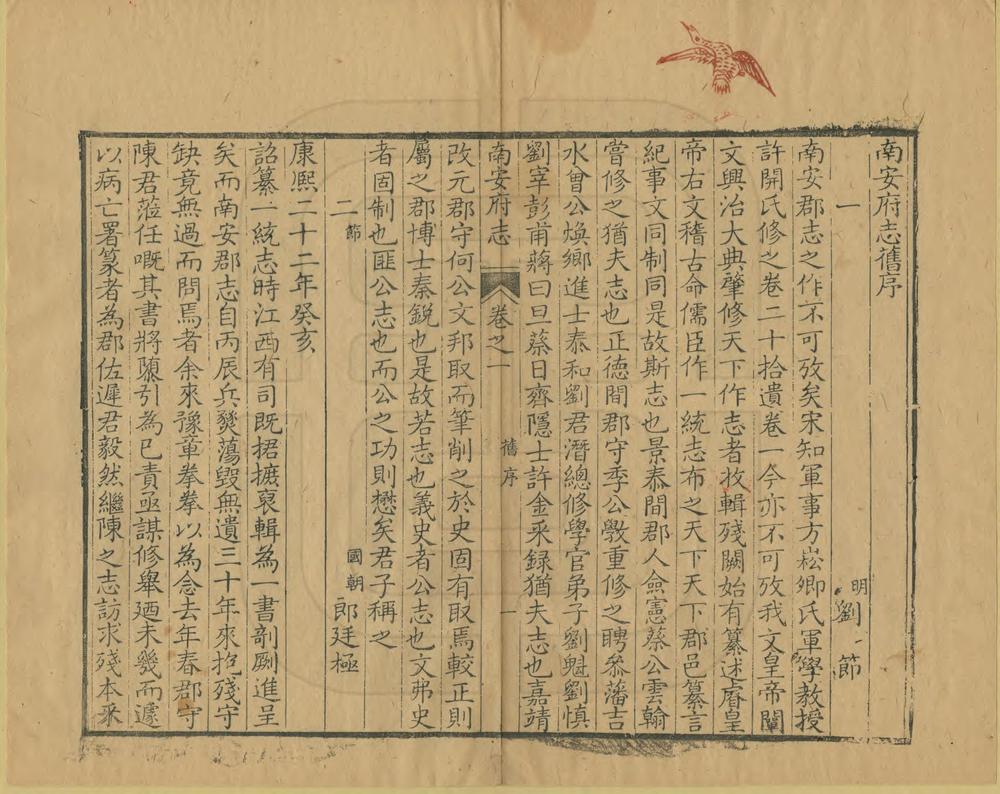 南安府志舊序
一 明劉節
南安郡志之作不可攷矣宋知軍事方崧卿氏軍學教授
許開氏修之卷二十拾遺卷一今亦不可攷我文皇帝闡
文興治大典肇修天下作志者收輯殘闕始有纂述睿皇
帝右文稽古命儒臣作一統志布之天下天下郡邑纂言
紀事文同制同是故斯志也景泰間郡人僉憲蔡公雲翰
嘗修之猶夫志也正德間郡守季公斆重修之聘叅藩吉
水曾公煥鄉進士泰和劉君潛總修學官弟子劉魁劉慎
劉宰彭甫蔣曰旦蔡日齊隱士許金釆録猶夫志也嘉靖
南安府志 卷之一 舊序 一
改元郡守何公文邦取而筆削之於史固有取焉較正則
屬之郡博士秦銳也是故若志也義史者公志也文弗史
者固制也匪公志也而公之功則懋矣君子稱之
二節 國朝郎廷極
康熙二十二年癸亥
詔纂一統志時江西有司既捃摭裒輯為一書剞劂進呈
矣而南安郡志自丙辰兵燹蕩毀無遺三十年來抱殘守
缺竟無過而問焉者余來豫章拳拳以為念去年春郡守
陳君蒞任嘅其書將隳引為已責亟謀修舉廼未幾而遽
以病亡署篆者為郡佐遲君毅然繼陳之志訪求殘本釆